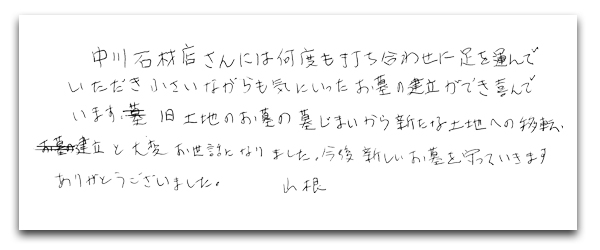 中川石材店さんには何度も打ち合わせに足を運んで
いただき小さいながらも気にいったお墓の建立ができ喜んで
います。旧土地のお墓の墓じまいから新たな土地への移転、
建立と大変お世話になりました。今後新しいお墓を守っていきます
ありがとうございました。 山根